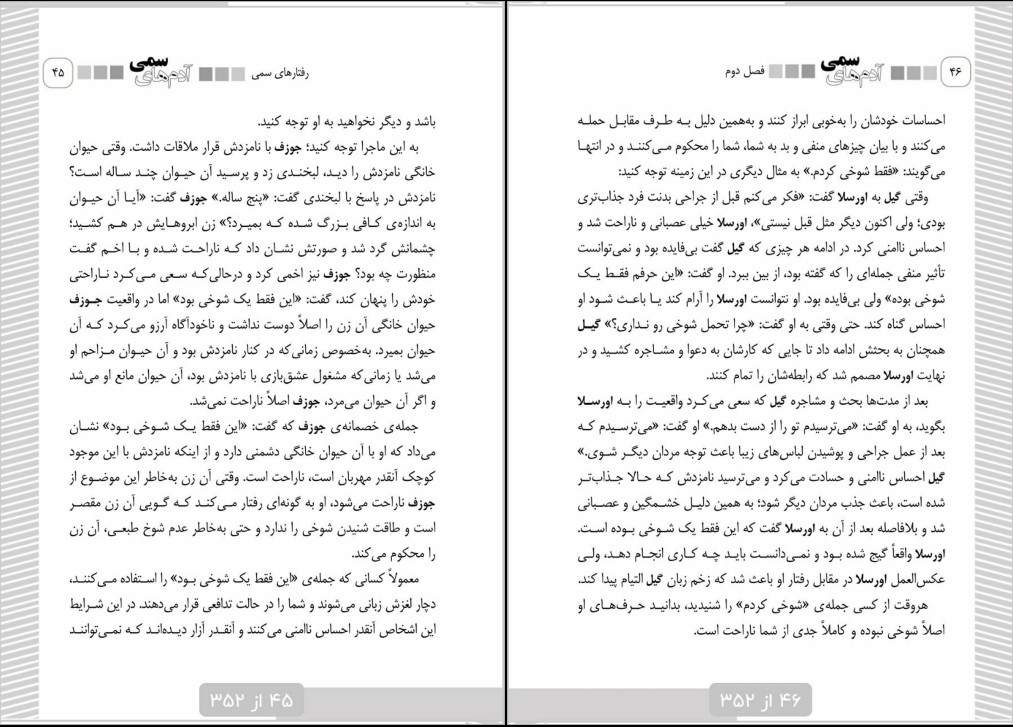 رفتارهای سمی
آدم‌های سمی
۴۵
باشد و دیگر نخواهید به او توجه کنید.
به این ماجرا توجه کنید؛ جوزف با نامزدش قرار ملاقات داشت. وقتی حیوان
خانگی نامزدش را دیـد، لبخنـدی زد و پرسـید آن حیـوان چنـد سـاله اسـت؟
نامزدش در پاسخ با لبخندی گفت: «پنج ساله.» جوزف گفت: «آیـا آن حیـوان
به اندازه‌ی کـافی بـزرگ شـده کـه بمیـرد؟» زن ابروهـایش در هـم کشـید؛
چشمانش گرد شد و صورتش نشـان داد کـه ناراحـت شـده و بـا اخـم گفـت
منظورت چه بود؟ جوزف نیز اخمی کرد و درحالی‌کـه سعی مـی‌کـرد نـاراحتی
خودش را پنهان کند، گفت: «این فقط یک شوخی بود» اما در واقعیت جـوزف
حیوان خانگی آن زن را اصلاً دوست نداشت و ناخودآگاه آرزو می‌کـرد کـه آن
حیوان بمیرد. به‌خصوص زمانی‌که در کنار نامزدش بود و آن حیـوان مـزاحم او
می‌شد یا زمانی‌که مشغول عشق‌بازی با نامزدش بود، آن حیوان مانع او می‌شد
و اگر آن حیوان می‌مرد، جوزف اصلاً ناراحت نمی‌شد.
جمله‌ی خصمانه‌ی جوزف که گفت: «این فقط یـک شـوخی بـود» نشـان
می‌داد که او با آن حیوان خانگی دشمنی دارد و از اینکه نامزدش با این موجود
کوچک آنقدر مهربان است، ناراحت است. وقتی آن زن به‌خاطر این موضـوع از
جوزف ناراحت می‌شود، او به گونه‌ای رفتار مـی‌کنـد کـه گـویی آن زن مقصـر
است و طاقت شنیدن شوخی را ندارد و حتی به‌خاطر عدم شوخ طبعـی، آن زن
را محکوم می‌کند.
معمولاً کسانی که جمله‌ی «این فقط یک شوخی بـود» را استفاده مـی‌کننـد،
دچار لغزش زبانی می‌شوند و شما را در حالت تدافعی قرار می‌دهند. در این شـرایط
این اشخاص آنقدر احساس ناامنی می‌کنند و آنقـدر آزار دیـده‌انـد کـه نمـی‌تواننـد
۴۵ از ۳۵۲
۴۶
آدم‌های سمی
فصل دوم
احساسات خودشان را به‌خوبی ابراز کنند و به‌همین دلیل بـه طـرف مقابـل حملـه
می‌کنند و با بیان چیزهای منفی و بد به شما، شما را محکوم مـی‌کننـد و در انتهـا
می‌گویند: «فقط شوخی کردم.» به مثال دیگری در این زمینه توجه کنید:
وقتی گیل به اورسلا گفت: «فکر می‌کنم قبل از جراحی بدنت فرد جذاب‌تری
بودی؛ ولی اکنون دیگر مثل قبل نیستی»، اورسلا خیلی عصبانی و ناراحت شد و
احساس ناامنی کرد. در ادامه هر چیزی که گیل گفت بی‌فایده بود و نمی‌توانست
تأثیر منفی جمله‌ای را که گفته بود، از بین ببرد. او گفت: «این حرفم فقـط یـک
شوخی بوده» ولی بی‌فایده بود. او نتوانست اورسلا را آرام کند یـا باعـث شـود او
احساس گناه کند. حتی وقتی به او گفت: «چرا تحمل شوخی رو نـداری؟» گیـل
همچنان به بحثش ادامه داد تا جایی که کارشان به دعوا و مشـاجره کشـید و در
نهایت اورسلا مصمم شد که رابطه‌شان را تمام کنند.
بعد از مدت‌ها بحث و مشاجره گیل که سعی می‌کـرد واقعیـت را بـه اورسـلا
بگوید، به او گفت: «می‌ترسیدم تو را از دست بدهم.» او گفت: «می‌ترسـیدم کـه
بعد از عمل جراحی و پوشیدن لباس‌های زیبا باعث توجه مردان دیگـر شـوی.»
گیل احساس ناامنی و حسادت می‌کرد و می‌ترسید نامزدش کـه حـالا جـذاب‌تـر
شده است، باعث جذب مردان دیگر شود؛ به همین دلیـل خشـمگین و عصـبانی
شد و بلافاصله بعد از آن به اورسلا گفت که این فقط یک شـوخی بـوده اسـت.
اورسلا واقعاً گیج شده بـود و نمـی‌دانسـت بایـد چـه کـاری انجـام دهـد، ولـی
عکس‌العمل اورسلا در مقابل رفتار او باعث شد که زخم زبان گیل التیام پیدا کند.
هروقت از کسی جمله‌ی «شوخی کردم» را شنیدید، بدانیـد حـرف‌هـای او
اصلاً شوخی نبوده و کاملاً جدی از شما ناراحت است.
۴۶ از ۳۵۲